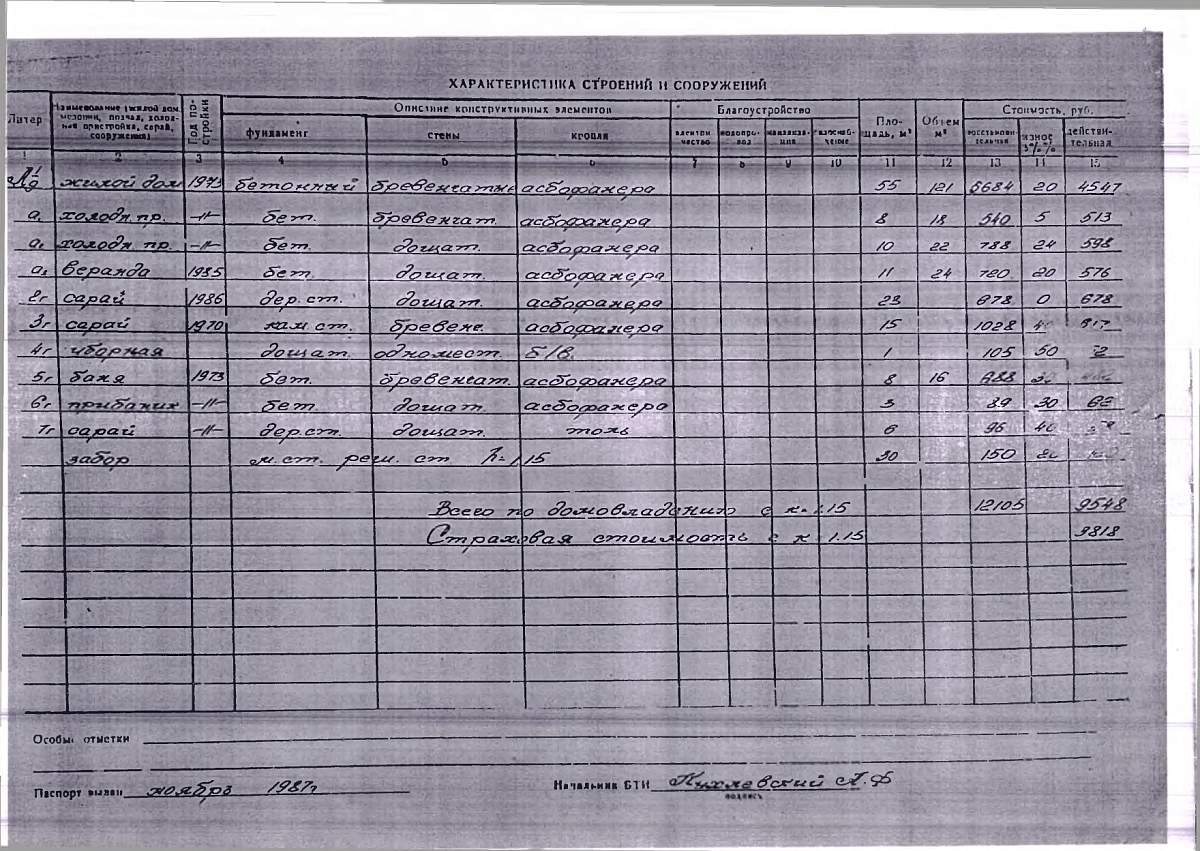 ХАРАКТЕРИСТИКА СТРОЕНИЙ И СООРУЖЕНИЙ
Литер Наименование (жилой дом, мезонин, подвал, холодная пристройка, сарай, сооружения) Год постройки Описание конструктивных элементов Благоустройство Площадь, м² Объем м³ Стоимость, руб.
фундамент стены кровля электричество водопровод канализация газоснабжение восстановительная износ в % % действительная
1 2 3 4 5 6 7 8 9 10 11 12 13 14 15
жилой дом 1973 бетонный бревенчатые асбофанера 55 121 20 4547
а. холодн. пр. -//- бет. бревенчат. асбофанера 8 18 540 5 513
а. холодн. пр. -//- бет. дощат. асбофанера 10 22 788 24 598
веранда 1985 бет. дощат. асбофанера 11 24 720 20 576
2г сарай 1986 дер. ст. дощат. асбофанера 23 678 0 678
3г сарай 1970 кам. ст. бревенч. асбофанера 15 1028
4г уборная дощат. одномест. б/в. 1 105 50
5г баня 1973 бет. бревенчат. асбофанера 8 16 688
6г прибаник -//- бет. дощат. асбофанера 3 89 30 62
7г сарай -//- дер. ст. дощат. толь 6 96
забор м. ст. реш. ст h= 1,15 30 150
Всего по домовладению с к. 1.15 12105 9548
Страховая стоимость с к 1.15 9818
Особые отметки
Паспорт выдан ноябрь 1987г Начальник БТИ А.Ф
подпись